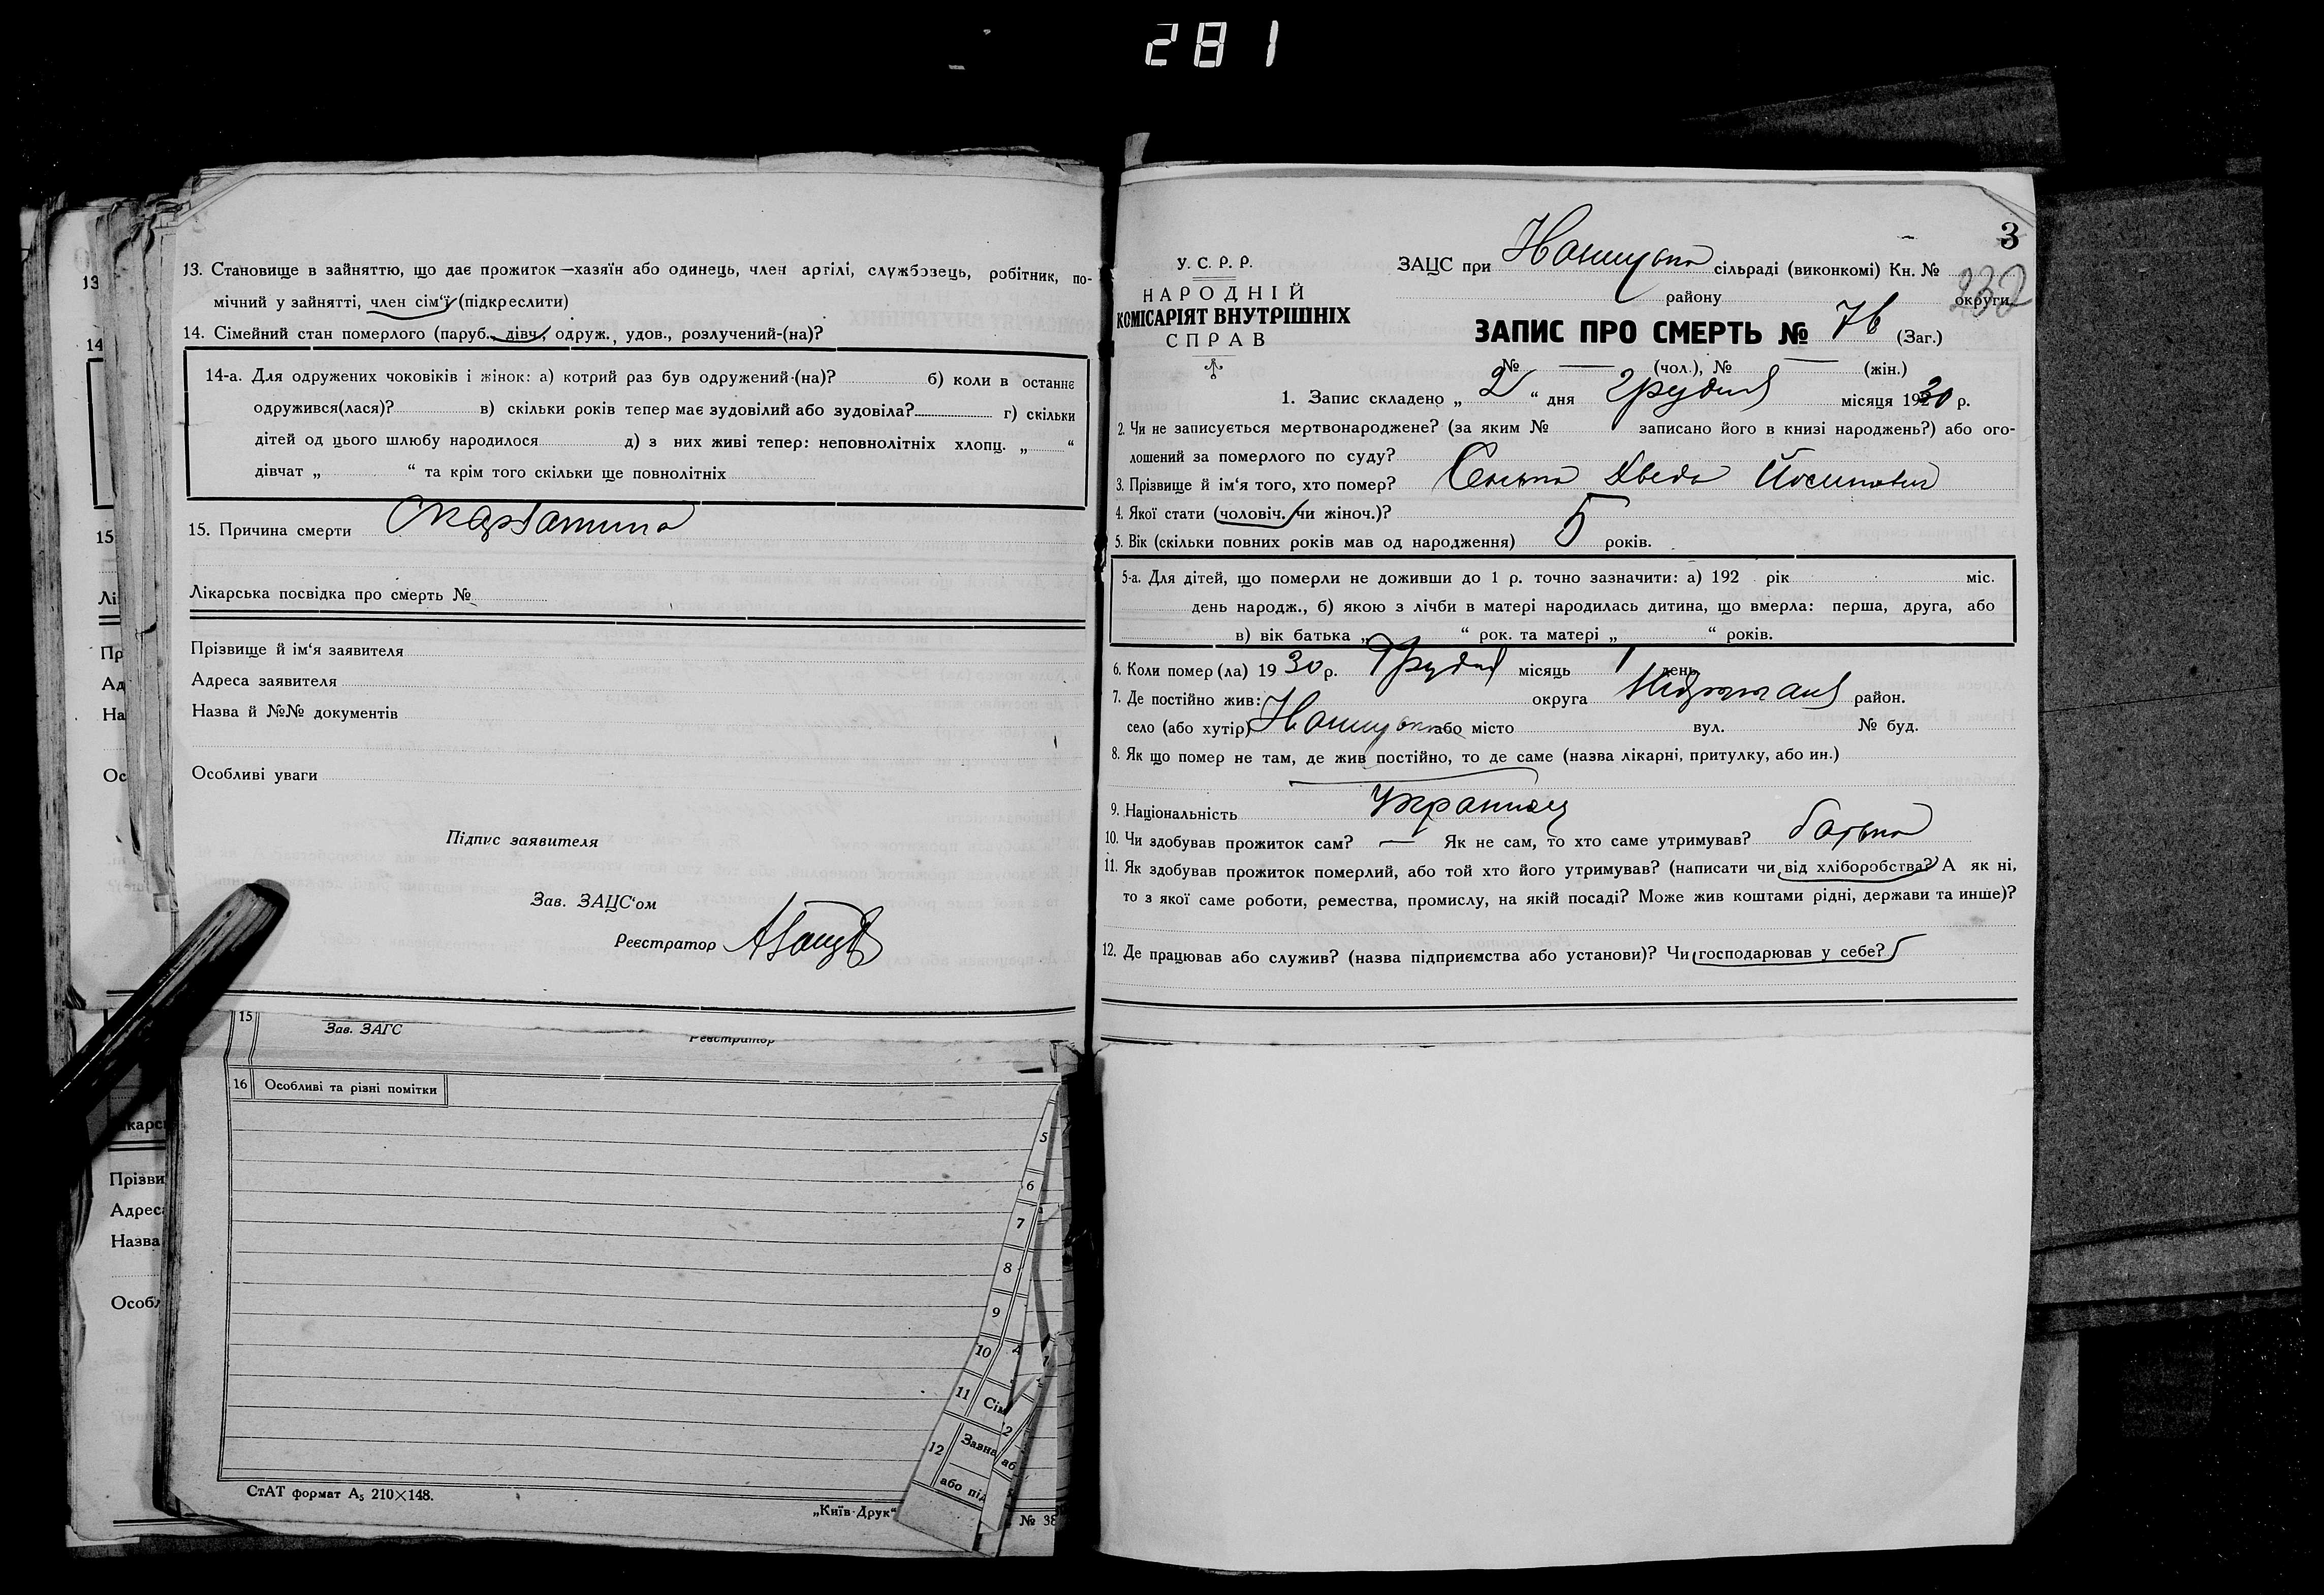 281
13. Становище в зайняттю, що дає прожиток—хазяїн або одинець, член артілі, службовець, робітник, по-
мічний у зайнятті, член сім‘ї (підкреслити)
14. Сімейний стан померлого (паруб., дівч., одруж., удов., розлучений-(на)?
14-а. Для одружених чоковіків і жінок: а) котрий раз був одружений-(на)? б) коли в останнє
одружився(лася)? в) скільки років тепер має зудовілий або зудовіла? г) скільки
дітей од цього шлюбу народилося д) з них живі тепер: неповнолітніх хлопц. „ “
дівчат „ “ та крім того скільки ще повнолітніх
15. Причина смерти Шкарлатина
Лікарська посвідка про смерть №
Прізвище й ім‘я заявителя
Адреса заявителя
Назва й №№ документів
Особливі уваги
Підпис заявителя
Зав. ЗАЦС‘ом
Реєстратор
15
Зав. ЗАГС
Реєстратор
16 Особливі та різні помітки
5
6
7
8
9
10
11 Сім
12 Завна
або під
СтАТ формат А5 210×148.
„Київ-Друк“
№ 38
13
14
15
Лі
Пр
Ад
На
Ос
карс
Прізви
Адрес
Назва
Особ
3
232
У. С. Р. Р.
НАРОДНІЙ
КОМІСАРІЯТ ВНУТРІШНІХ
СПРАВ
ЗАЦС при сільраді (виконкомі) Кн. №
району округи
ЗАПИС ПРО СМЕРТЬ № 76 (Заг.)
№ — (чол.), № — (жін.)
1. Запис складено „ 2 “ дня Грудня місяця 1930 р.
2. Чи не записується мертвонароджене? (за яким № записано його в книзі народжень?) або ого-
лошений за померлого по суду?
3. Прізвище й ім‘я того, хто помер? Йосипович
4. Якої стати (чоловіч. чи жіноч.)?
5. Вік (скільки повних років мав од народження) 5 років.
5-а. Для дітей, що померли не доживши до 1 р. точно зазначити: а) 192 рік міс.
день народж., б) якою з лічби в матері народилась дитина, що вмерла: перша, друга, або
в) вік батька „ “ рок. та матері „ “ років.
6. Коли помер (ла) 1930 р. Грудня місяць 1 день
7. Де постійно жив: округа район.
село (або хутір) або місто вул. № буд.
8. Як що помер не там, де жив постійно, то де саме (назва лікарні, притулку, або ин.)
9. Національність Українец
10. Чи здобував прожиток сам? — Як не сам, то хто саме утримував? батько
11. Як здобував прожиток померлий, або той хто його утримував? (написати чи від хліборобства? А як ні,
то з якої саме роботи, ремества, промислу, на якій посаді? Може жив коштами рідні, держави та инше)?
12. Де працював або служив? (назва підприємства або установи)? Чи господарював у себе?